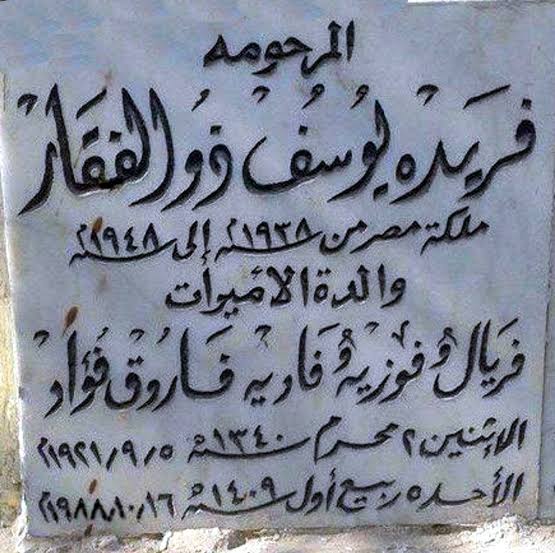 المرحومه
فَريَده يوُسُف ذوُ الفقَار
ملكة مصر من ١٩٣٨م إلى ١٩٤٨م
والدة الأميرات
فَريال وفوزيه وفَاديه فَاروق فؤاد
الإثنين ٢ محرم سنة ١٣٤٠هـ ١٩٢١/٩/٥م
الأحد ٥ ربيع أول سنة ١٤٠٩هـ ١٩٨٨/١٠/١٦م